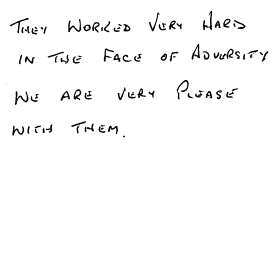 THEY WORKED VERY HARD
IN THE FACE OF ADVERSITY
WE ARE VERY PLEASE
WITH THEM.